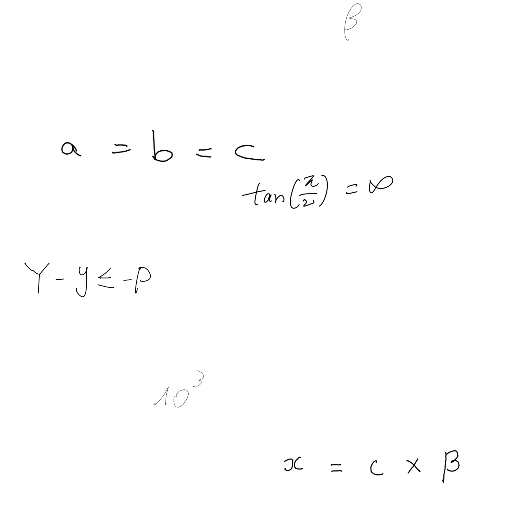 β
a = b = c
tan(π/2) = ∞
Y - y ≤ -p
10³
x = c × β